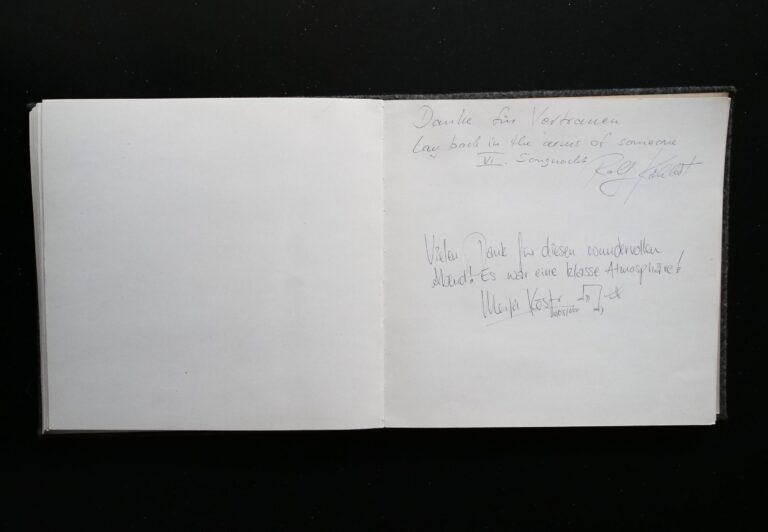 Danke für Vertrauen
Lay back in the arms of someone
VI. Songnacht Ralf
Vielen Dank für diesen wundervollen
Abend! Es war eine klasse Atmosphäre!